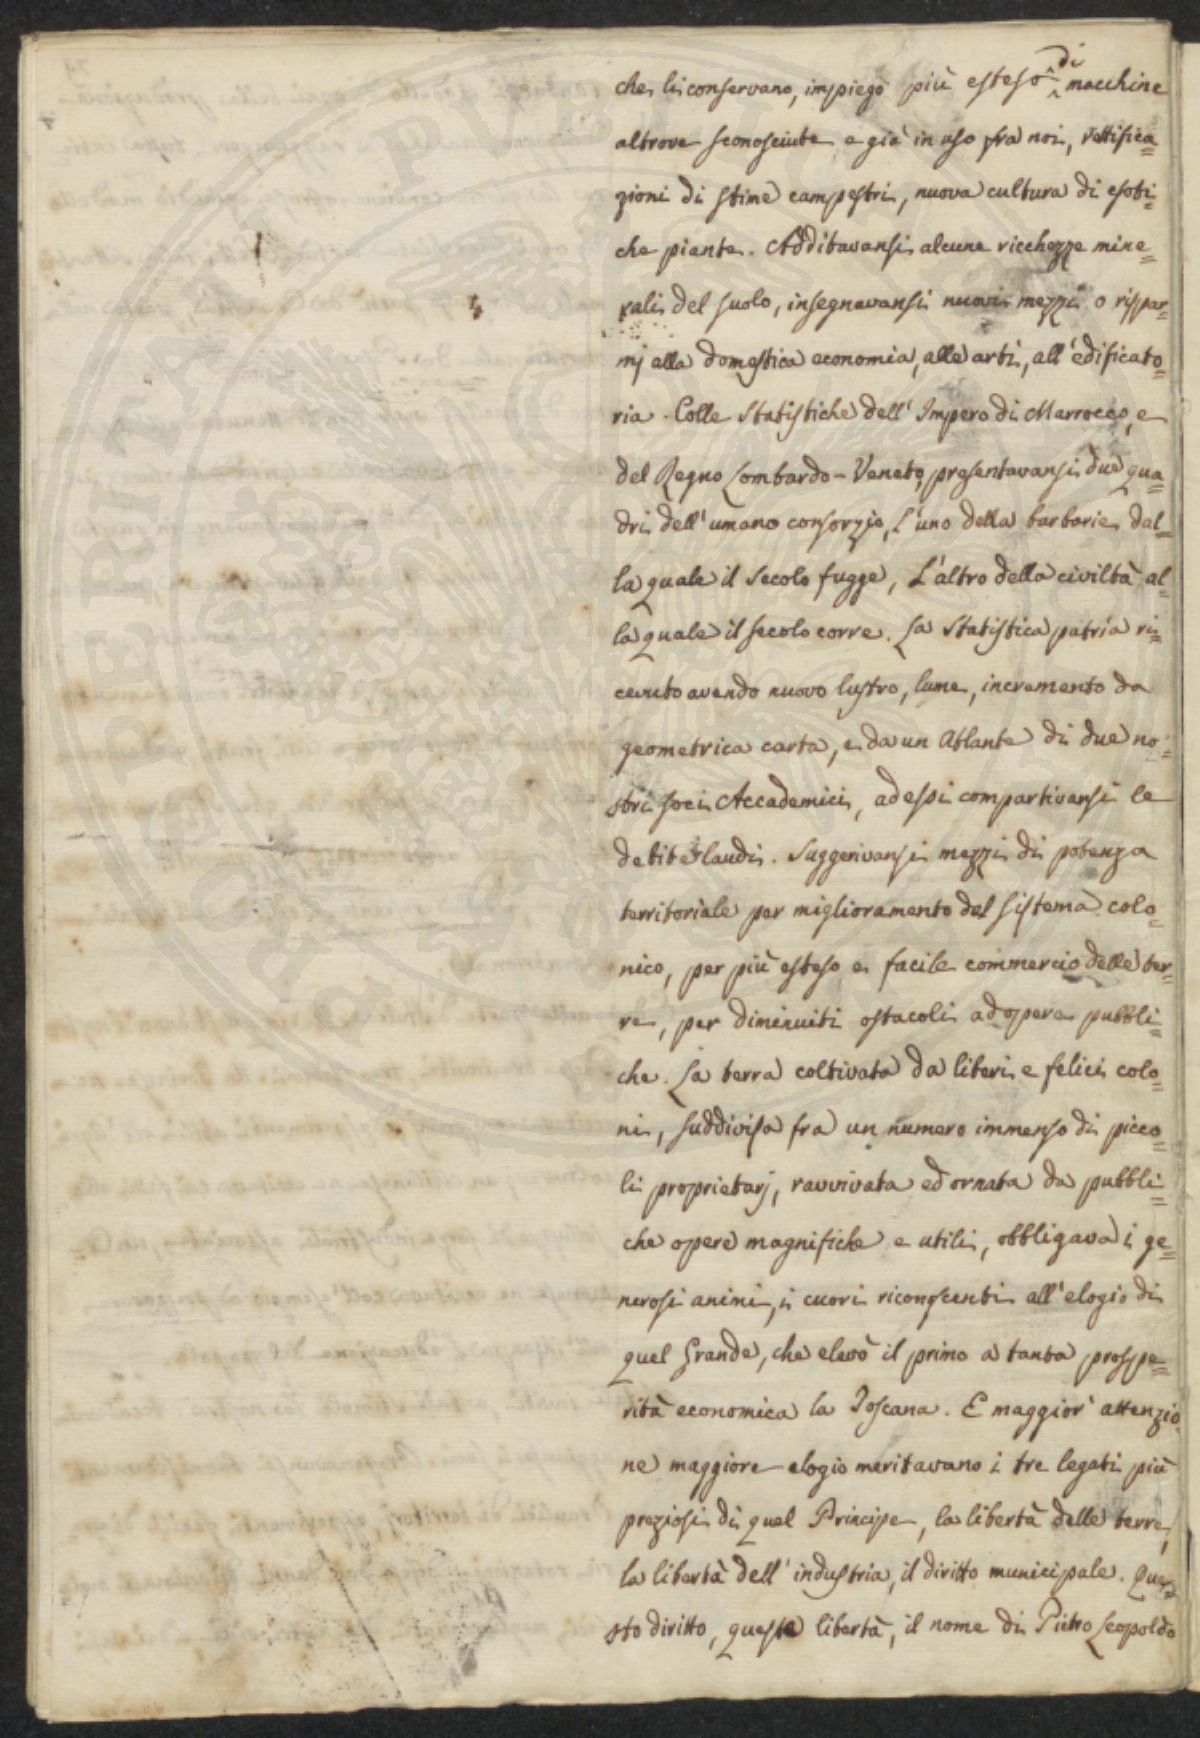 che li conservano, impiego più esteso di macchine
altrove sconosciute e già in uso fra noi, rettifica=
zioni di stime campestri, nuova cultura di esoti=
che piante. Additavansi alcune ricchezze mine=
rali del suolo, insegnavansi nuovi mezzi o rispar=
mj alla domestica economia, alle arti, all'edificato=
ria. Colle Statistiche dell'Impero di Marrocco, e
del Regno Lombardo-Veneto, presentavansi due qua=
dri dell'umano consorzio, l'uno della barbarie dal=
la quale il Secolo fugge, l'altro della civiltà al=
la quale il secolo corre. La Statistica patria ri=
cevuto avendo nuovo lustro, lume, incremento da
geometrica carta, e da un Atlante di due no=
stri soci Accademici, ad essi compartivansi le
debite laudi. Suggerivansi mezzi di potenza
territoriale per miglioramento del sistema colo=
nico, per più esteso e facile commercio delle ter=
re, per diminuiti ostacoli ad opere pubbli=
che. La terra coltivata da liberi e felici colo=
ni, suddivisa fra un numero immenso di picco=
li proprietarj, ravvivata ed ornata da pubbli=
che opere magnifiche e utili, obbligava i ge=
nerosi animi, i cuori riconoscenti all'elogio di
quel Grande, che elevò il primo a tanta prospe=
rità economica la Toscana. E maggior attenzio=
ne maggiore elogio meritavano i tre legati più
preziosi di quel Principe, la libertà delle terre,
la libertà dell'industria, il diritto municipale. Que=
sto diritto, queste libertà, il nome di Pietro Leopoldo